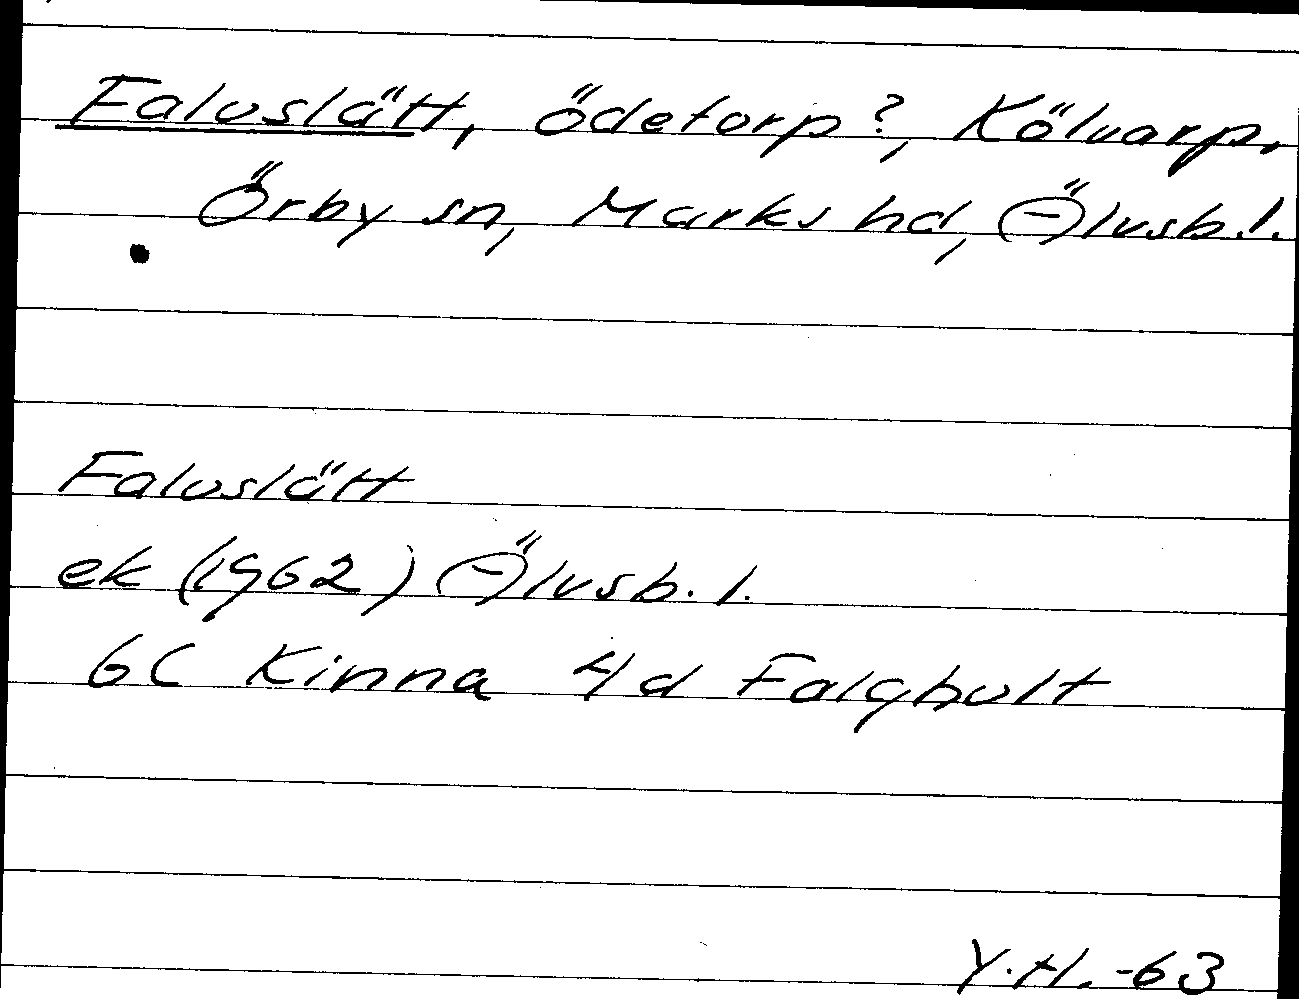 Faluslätt, ödetorp?, Kölvarp,
Örby sn, Marks hd, Älvsb.l.
Faluslätt
ek (1962) Älvsb.l.
6C Kinna 4d Falghult
Y.H. -63